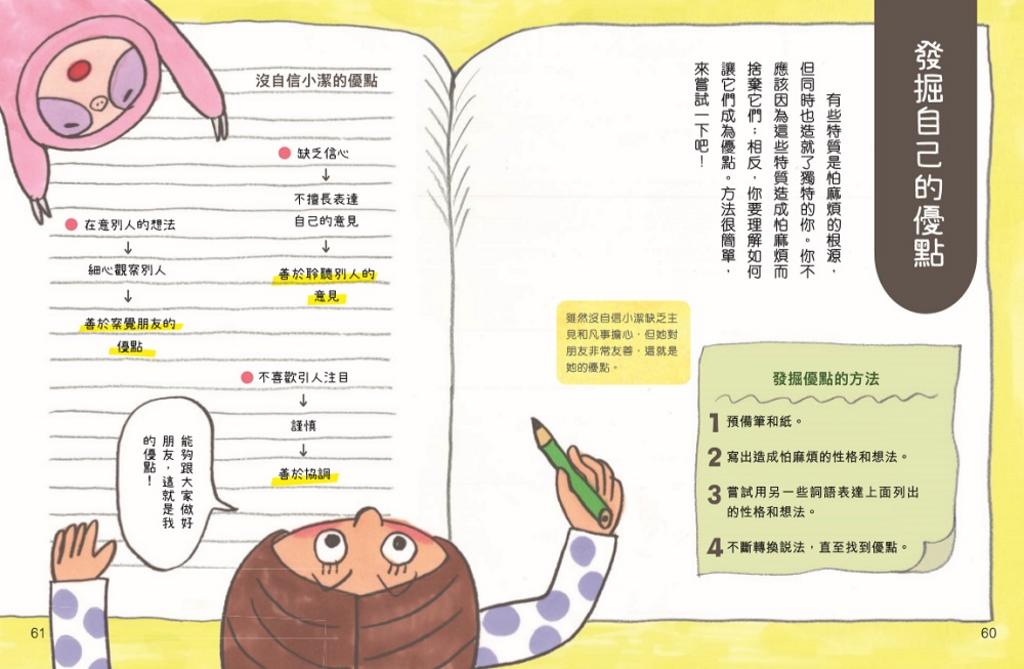 發掘自己的優點
有些特質是怕麻煩的根源，
但同時也造就了獨特的你。你不
應該因為這些特質造成怕麻煩而
捨棄它們；相反，你要理解如何
讓它們成為優點。方法很簡單，
來嘗試一下吧！
雖然沒自信小潔缺乏主
見和凡事擔心，但她對
朋友非常友善，這就是
她的優點。
發掘優點的方法
1 預備筆和紙。
2 寫出造成怕麻煩的性格和想法。
3 嘗試用另一些詞語表達上面列出
的性格和想法。
4 不斷轉換說法，直至找到優點。
60
沒自信小潔的優點
缺乏信心
↓
不擅長表達
自己的意見
↓
善於聆聽別人的
意見
在意別人的想法
↓
細心觀察別人
↓
善於察覺朋友的
優點
不喜歡引人注目
↓
謹慎
↓
善於協調
能夠跟大家做好
朋友，這就是我
的優點！
61